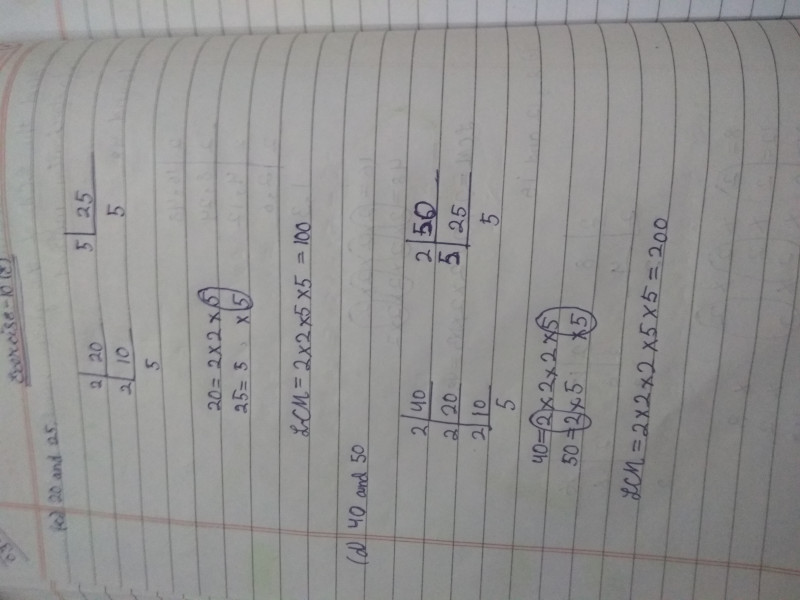 Exercise-10(B)
(c) 20 and 25.
2 | 20 5 | 25
2 | 10 5
5
20 = 2×2×5
25 = 5 ×5
LCM = 2×2×5×5 = 100
(d) 40 and 50
2 | 40 2 | 50
2 | 20 5 | 25
2 | 10 5
5
40 = 2×2×2×5
50 = 2×5 ×5
LCM = 2×2×2×5×5 = 200